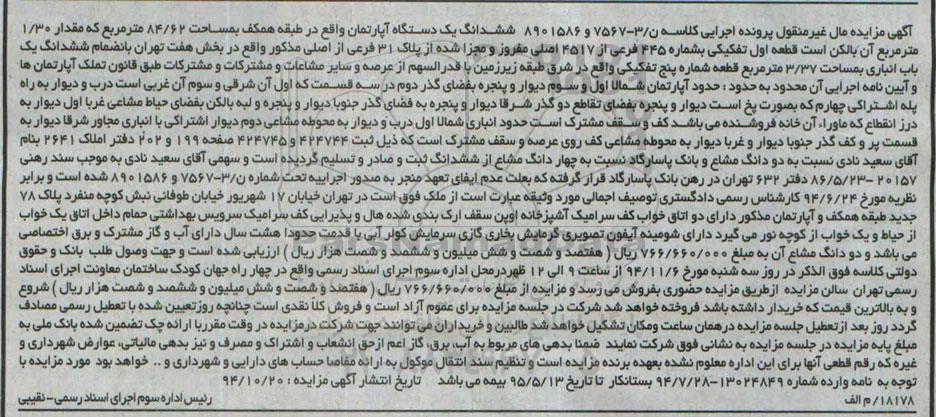 آگهی مزایده مال غیرمنقول پرونده اجرایی کلاسه ن/۳-۷۵۶۷ و ۸۹۰۱۵۸۶ ششدانگ یک دستگاه آپارتمان واقع در طبقه همکف بمساحت ۸۴/۶۲ مترمربع که مقدار ۱/۳۰
مترمربع آن بالکن است قطعه اول تفکیکی بشماره ۴۴۵ فرعی از ۴۵۱۷ اصلی مفروز و مجزا شده از پلاک ۳۱ فرعی از اصلی مذکور واقع در بخش هفت تهران بانضمام ششدانگ یک
باب انباری بمساحت ۳/۳۷ مترمربع قطعه شماره پنج تفکیکی واقع در شرق طبقه زیرزمین با قدرالسهم از عرصه و سایر مشاعات و مشترکات و مشترکات طبق قانون تملک آپارتمان ها
و آیین نامه اجرایی آن محدود به حدود: حدود آپارتمان شمالا اول و سوم دیوار و پنجره بفضای گذر دوم در سه قسمت که اول آن شرقی و سوم آن غربی است درب و دیوار به راه
پله اشتراکی چهارم که بصورت پخ است دیوار و پنجره بفضای تقاطع دو گذر شرقا دیوار و پنجره به فضای گذر جنوبا دیوار و پنجره و لبه بالکن بفضای حیاط مشاعی غربا اول دیوار به
درز انقطاع که ماوراء آن خانه فروشنده می باشد کف و سقف مشترک است حدود انباری شمالا اول درب و دیوار به محوطه مشاعی دوم دیوار اشتراکی با انباری مجاور شرقا دیوار به
قسمت پر و کف گذر جنوبا دیوار و غربا دیوار به محوطه مشاعی کف روی عرصه و سقف مشترک است که ذیل ثبت ۴۲۴۷۴۴ و ۴۲۴۷۴۵ صفحه ۱۹۹ و ۲۰۲ دفتر املاک ۲۶۴۱ بنام
آقای سعید نادی نسبت به دو دانگ مشاع و بانک پاسارگاد نسبت به چهار دانگ مشاع از ششدانگ ثبت و صادر و تسلیم گردیده است و سهمی آقای سعید نادی به موجب سند رهنی
۲۰۱۵۷ -۸۶/۵/۲۳ دفتر ۶۳۲ تهران در رهن بانک پاسارگاد قرار گرفته که بعلت عدم ایفای تعهد منجر به صدور اجراییه تحت شماره ن/۳-۷۵۶۷ و ۸۹۰۱۵۸۶ شده است و برابر
نظریه مورخ ۹۴/۶/۲۴ کارشناس رسمی دادگستری توصیف اجمالی مورد وثیقه عبارت است از ملک فوق است در تهران خیابان ۱۷ شهریور خیابان طوفانی نبش کوچه منفرد پلاک ۷۸
جدید طبقه همکف و آپارتمان مذکور دارای دو اتاق خواب کف سرامیک آشپزخانه اوپن سقف ارک بندی شده هال و پذیرایی کف سرامیک سرویس بهداشتی حمام داخل اتاق یک خواب
از حیاط و یک خواب از کوچه نور می گیرد دارای شومینه آیفون تصویری گرمایش بخاری گازی سرمایش کولر آبی با قدمت حدودا هشت سال دارای آب و گاز مشترک و برق اختصاصی
می باشد و دو دانگ مشاع آن به مبلغ ۷۶۶/۶۶۰/۰۰۰ ریال (هفتصد و شصت و شش میلیون و ششصد و شصت هزار ریال) ارزیابی شده است و جهت وصول طلب بانک و حقوق
دولتی کلاسه فوق الذکر در روز سه شنبه مورخ ۹۴/۱۱/۶ از ساعت ۹ الی ۱۲ ظهردرمحل اداره سوم اجرای اسناد رسمی واقع در چهار راه جهان کودک ساختمان معاونت اجرای اسناد
رسمی تهران سالن مزایده ازطریق مزایده حضوری بفروش می رسد و مزایده از مبلغ ۷۶۶/۶۶۰/۰۰۰ ریال (هفتصد و شصت و شش میلیون و ششصد و شصت هزار ریال) شروع
و به بالاترین قیمت که خریدار داشته باشد فروخته خواهد شد شرکت در جلسه مزایده برای عموم آزاد است و فروش کلاً نقدی است چنانچه روزتعیین شده با تعطیل رسمی مصادف
گردد روز بعد ازتعطیل جلسه مزایده درهمان ساعت ومکان تشکیل خواهد شد طالبین و خریداران می توانند جهت شرکت درمزایده در وقت مقرربا ارائه چک تضمین شده بانک ملی به
مبلغ پایه مزایده در جلسه مزایده به نشانی فوق شرکت نمایند ضمنا بدهی های مربوط به آب، برق، گاز اعم ازحق انشعاب و اشتراک و مصرف و نیز بدهی مالیاتی، عوارض شهرداری و
غیره که رقم قطعی آنها برای این اداره معلوم نشده بعهده برنده مزایده است و تنظیم سند انتقال موکول به ارائه مفاصا حساب های دارایی و شهرداری و .. خواهد بود مورد مزایده با
توجه به نامه وارده شماره ۱۳۰۲۴۸۴۹-۹۴/۷/۲۸ بستانکار تا تاریخ ۹۵/۵/۱۳ بیمه می باشد تاریخ انتشار آگهی مزایده: ۹۴/۱۰/۲۰
۱۸۱۷۸/م الف رئیس اداره سوم اجرای اسناد رسمی- نقیبی
ParsNamadData